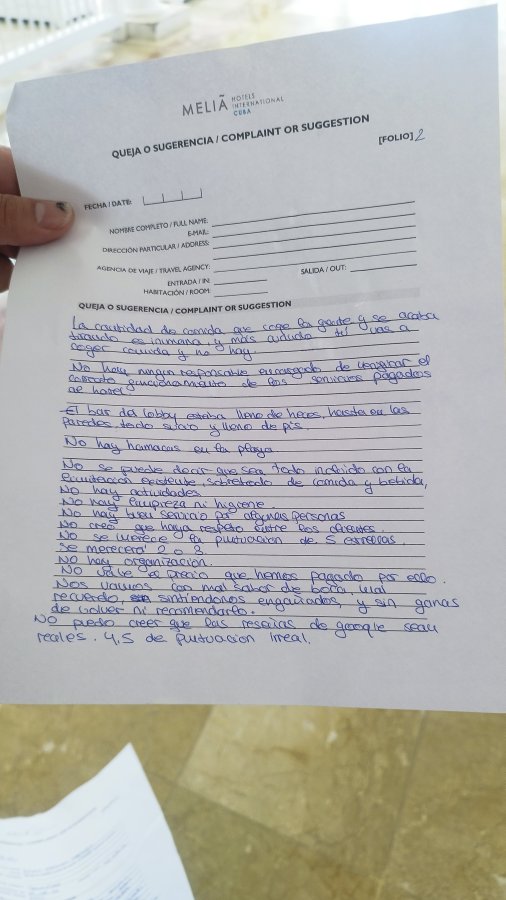 MELIÃ HOTELS INTERNATIONAL CUBA
QUEJA O SUGERENCIA / COMPLAINT OR SUGGESTION
[FOLIO] 2
FECHA / DATE:
NOMBRE COMPLETO / FULL NAME:
E-MAIL:
DIRECCIÓN PARTICULAR / ADDRESS:
AGENCIA DE VIAJE / TRAVEL AGENCY:
SALIDA / OUT:
ENTRADA / IN:
HABITACIÓN / ROOM:
QUEJA O SUGERENCIA / COMPLAINT OR SUGGESTION
La cantidad de comida que coge la gente y se acaba
tirando es inumana, y mas cuando tú vas a
coger comida y no hay.
No hay ningun responsable encargado de vigilar el
correcto funcionamiento de los servicios pagados
de hotel
El bar del lobby estaba lleno de heces, hasta en las
paredes, todo sucio y lleno de pis.
No hay hamacas en la playa.
No se puede decir que sea todo incluido con la
limitación existente, sobretodo de comida y bebida,
No hay actividades
No hay limpieza ni higiene
No hay buen servicio por algunas personas
No creo que haya respeto entre los clientes.
No se merece la puntuacion de 5 estrellas
Se merecera 2 o 3
No hay organización.
No vale el precio que hemos pagado por ello.
Nos vamos con mal sabor de boca, mal
recuerdo, sintiendonos engañados, y sin ganas
de volver ni recomendarlo.
No puedo creer que las reseñas de google sean
reales. 4,5 de puntuacion irreal.